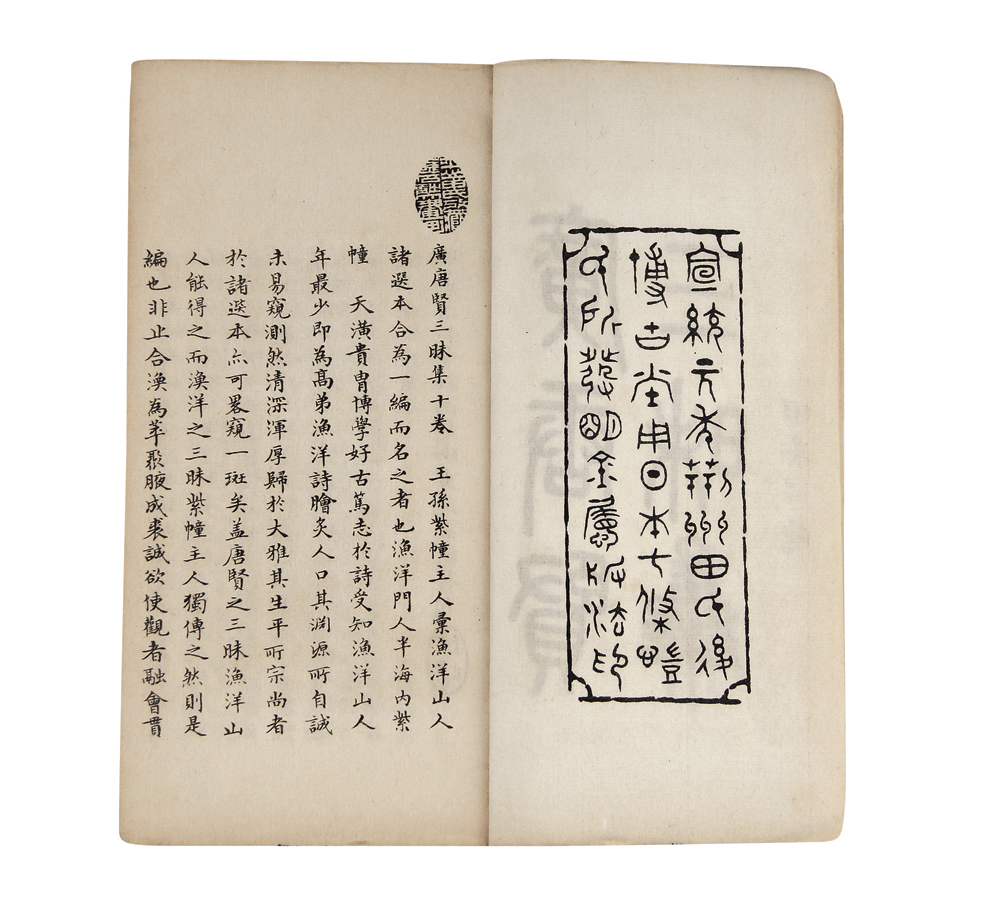 宣統元年荊州田氏後
博古堂用日本七條愷
氏所發明金屬版法印
廣唐賢三昧集十卷　王孫紫幢主人彙漁洋山人
諸選本合為一編而名之者也漁洋門人半海內紫
幢　天潢貴胄博學好古篤志於詩受知漁洋山人
年最少即為高弟漁洋詩膾炙人口其淵源所自誠
未易窺測然清深渾厚歸於大雅其生平所宗尚者
於諸選本亦可畧窺一斑矣盖唐賢之三昧漁洋山
人能得之而漁洋之三昧紫幢主人獨傳之然則是
編也非止合渙為萃聚腋成裘誠欲使觀者融會貫